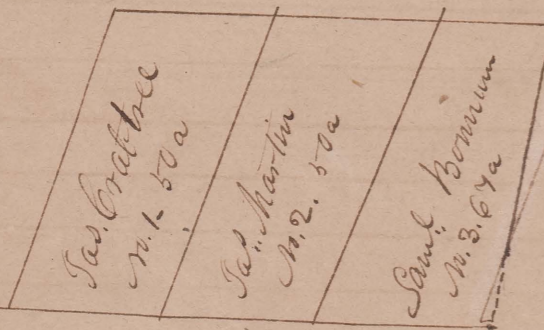 Jas. Crabtree
N. 1 - 50 a
Jas. Martin
N. 2. 50 a
Saml.
N. 3. 67 a